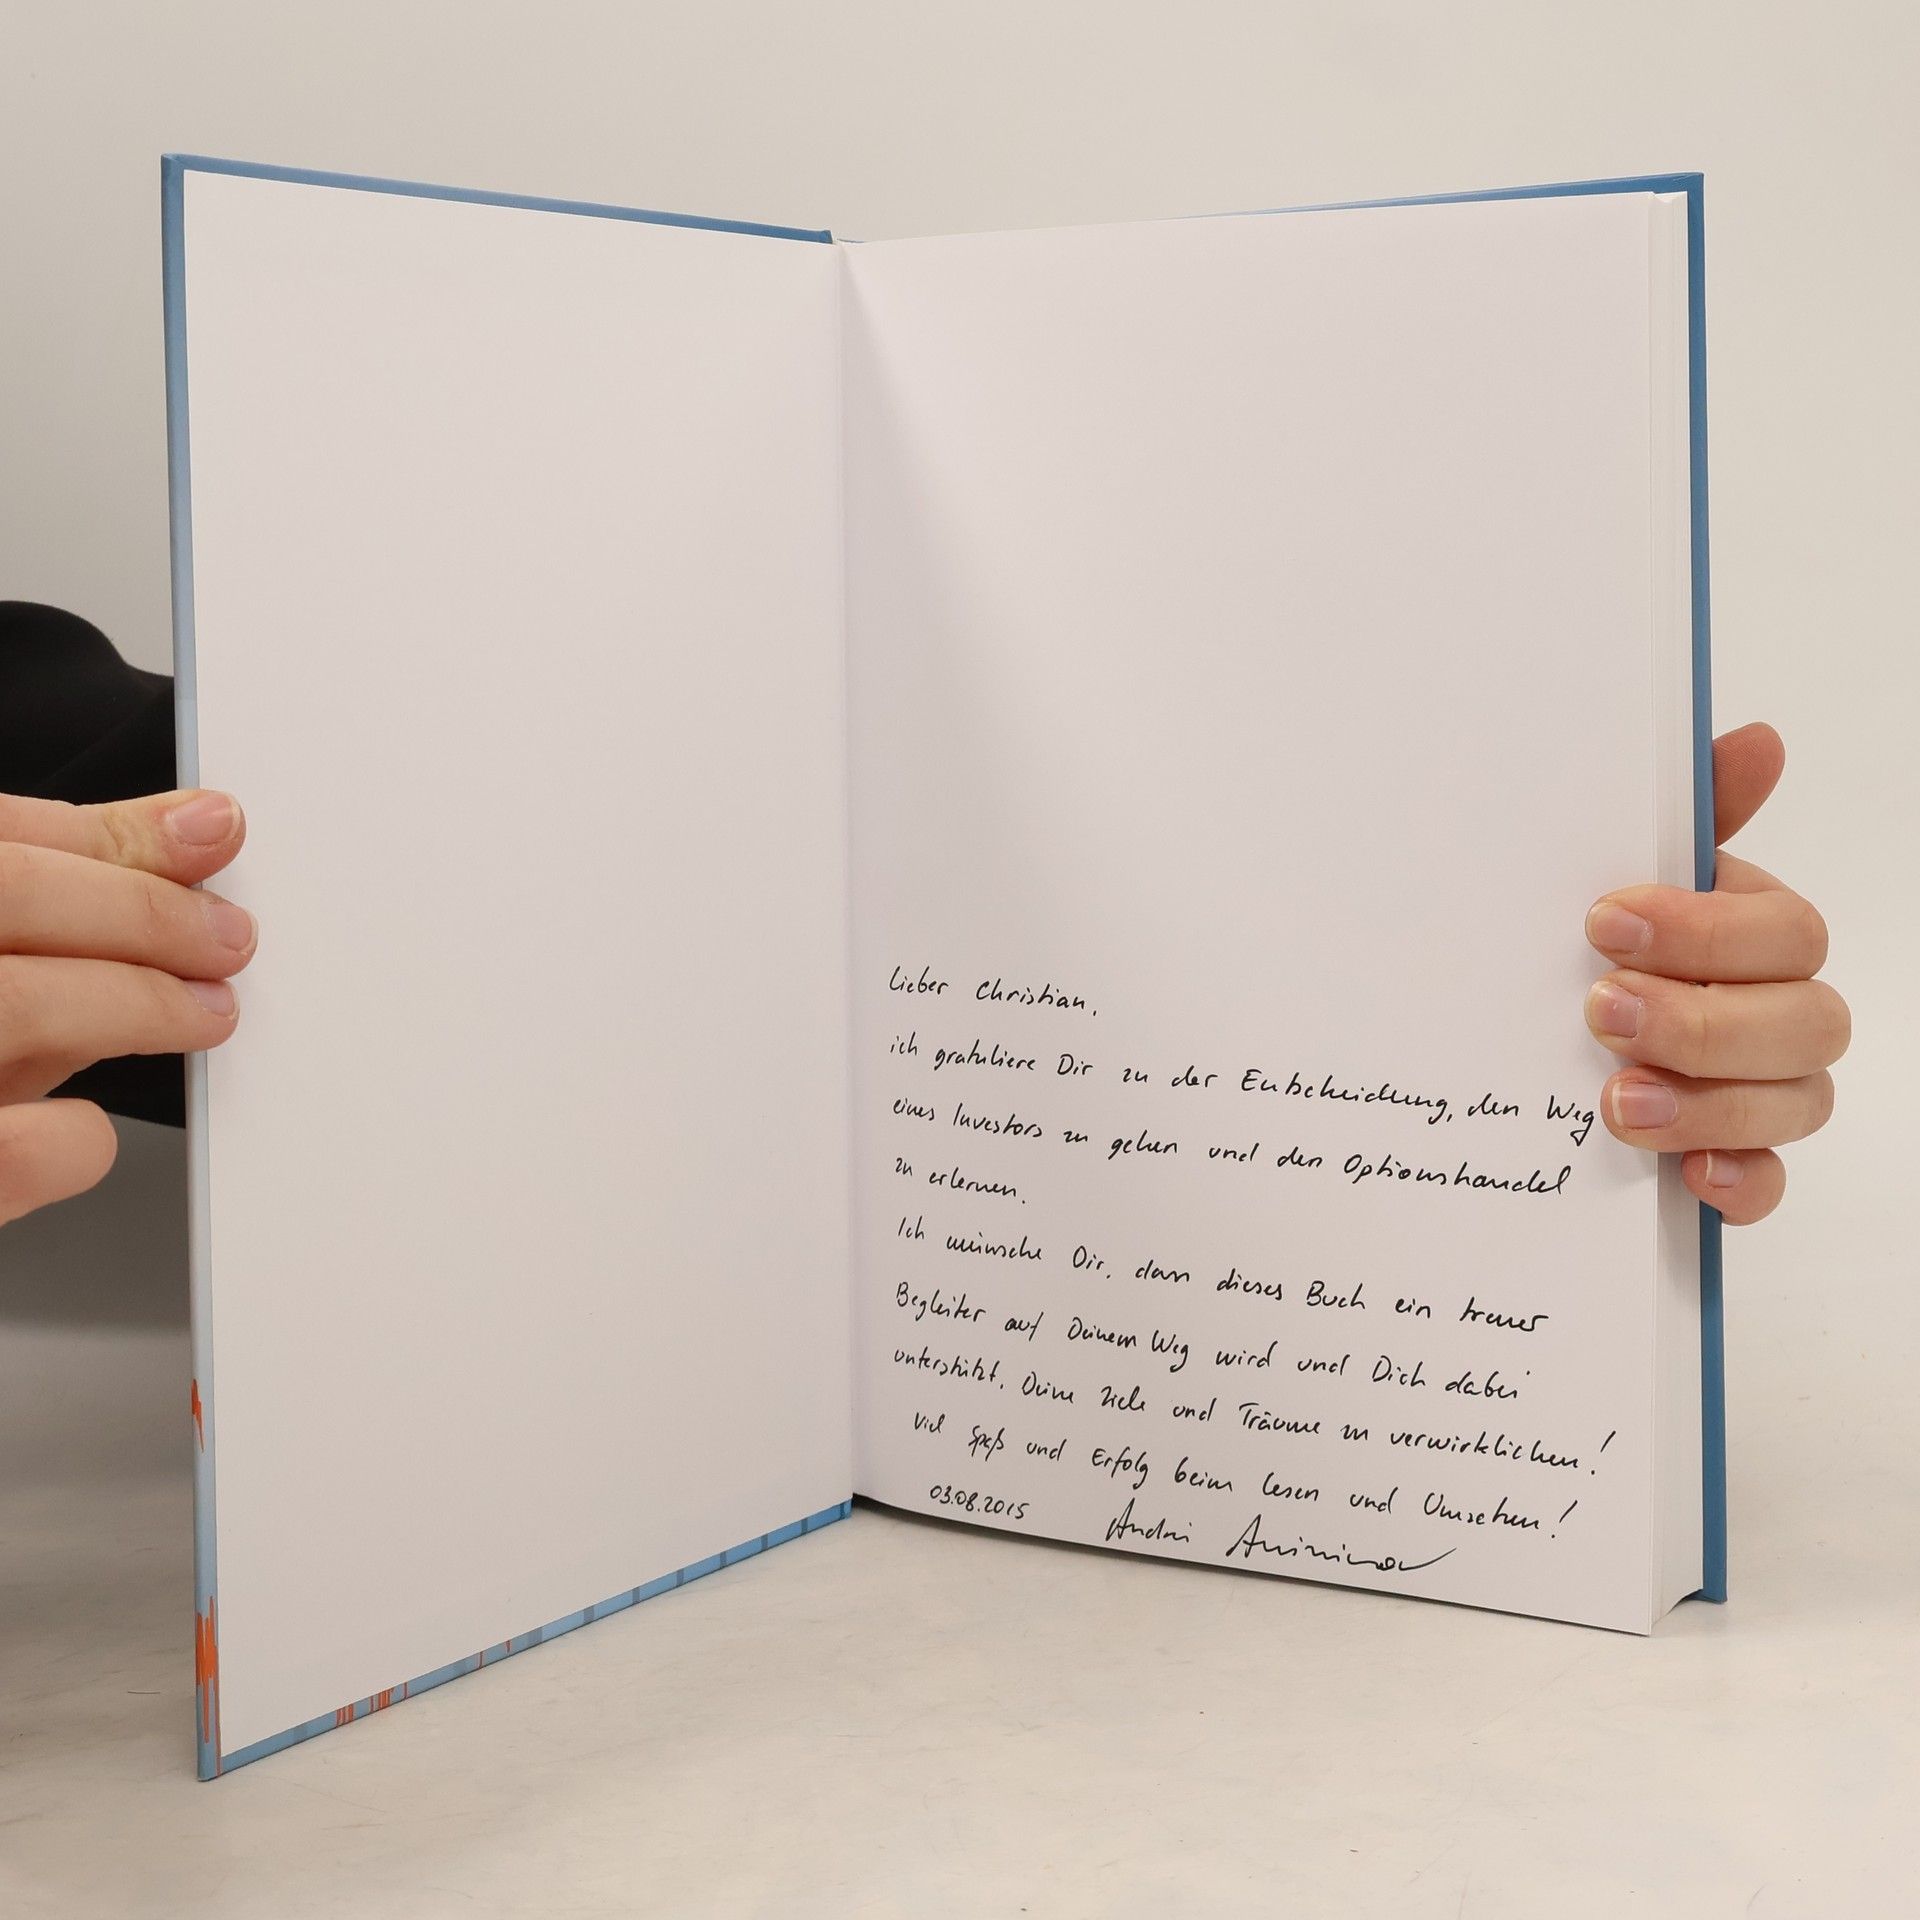 Lieber Christian,
ich gratuliere Dir zu der Entscheidung, den Weg
eines Investors zu gehen und den Optionshandel
zu erlernen.
Ich wünsche Dir, dass dieses Buch ein treuer
Begleiter auf Deinem Weg wird und Dich dabei
unterstützt, Deine Ziele und Träume zu verwirklichen!
Viel Spaß und Erfolg beim Lesen und Umsetzen!
03.08.2015 Andrei Anissimov